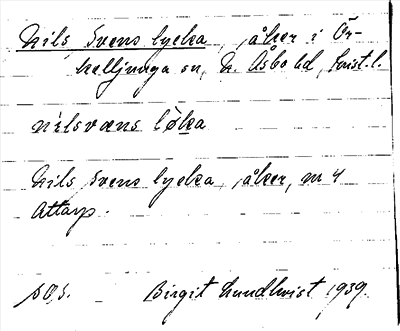 Nils Svens lycka, åker i Ör-
kelljunga sn, N. Åsbo hd, Krist. l.
nilsvæns løka
Nils Svens lycka, åker, nr 4
Attarp.
s. o. s. Birgit Lundkvist 1939.